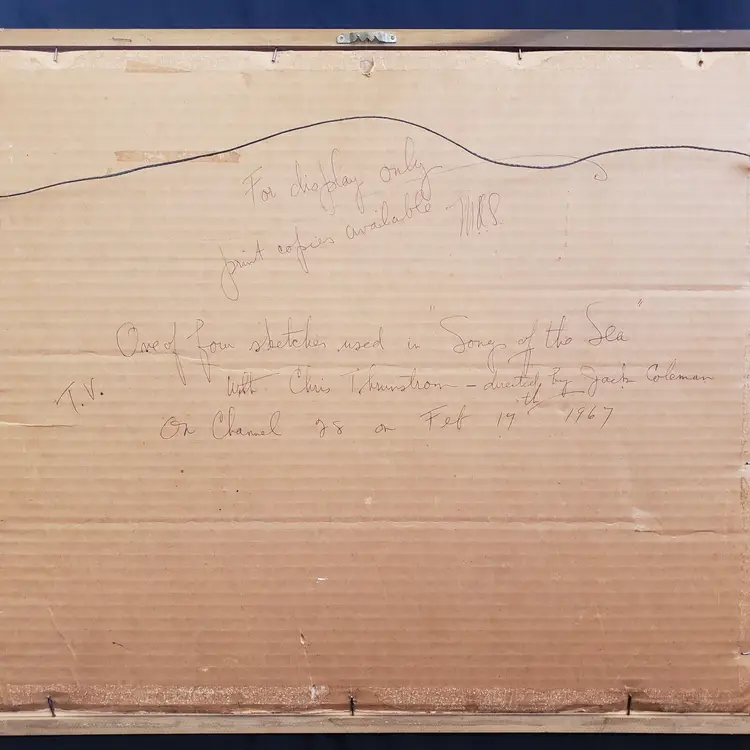 For display only
print copies available M.R.S.
One of four sketches used in "Songs of the Sea"
T.V. with Chris - directed by Jack Coleman
On Channel 28 on Feb 19th 1967